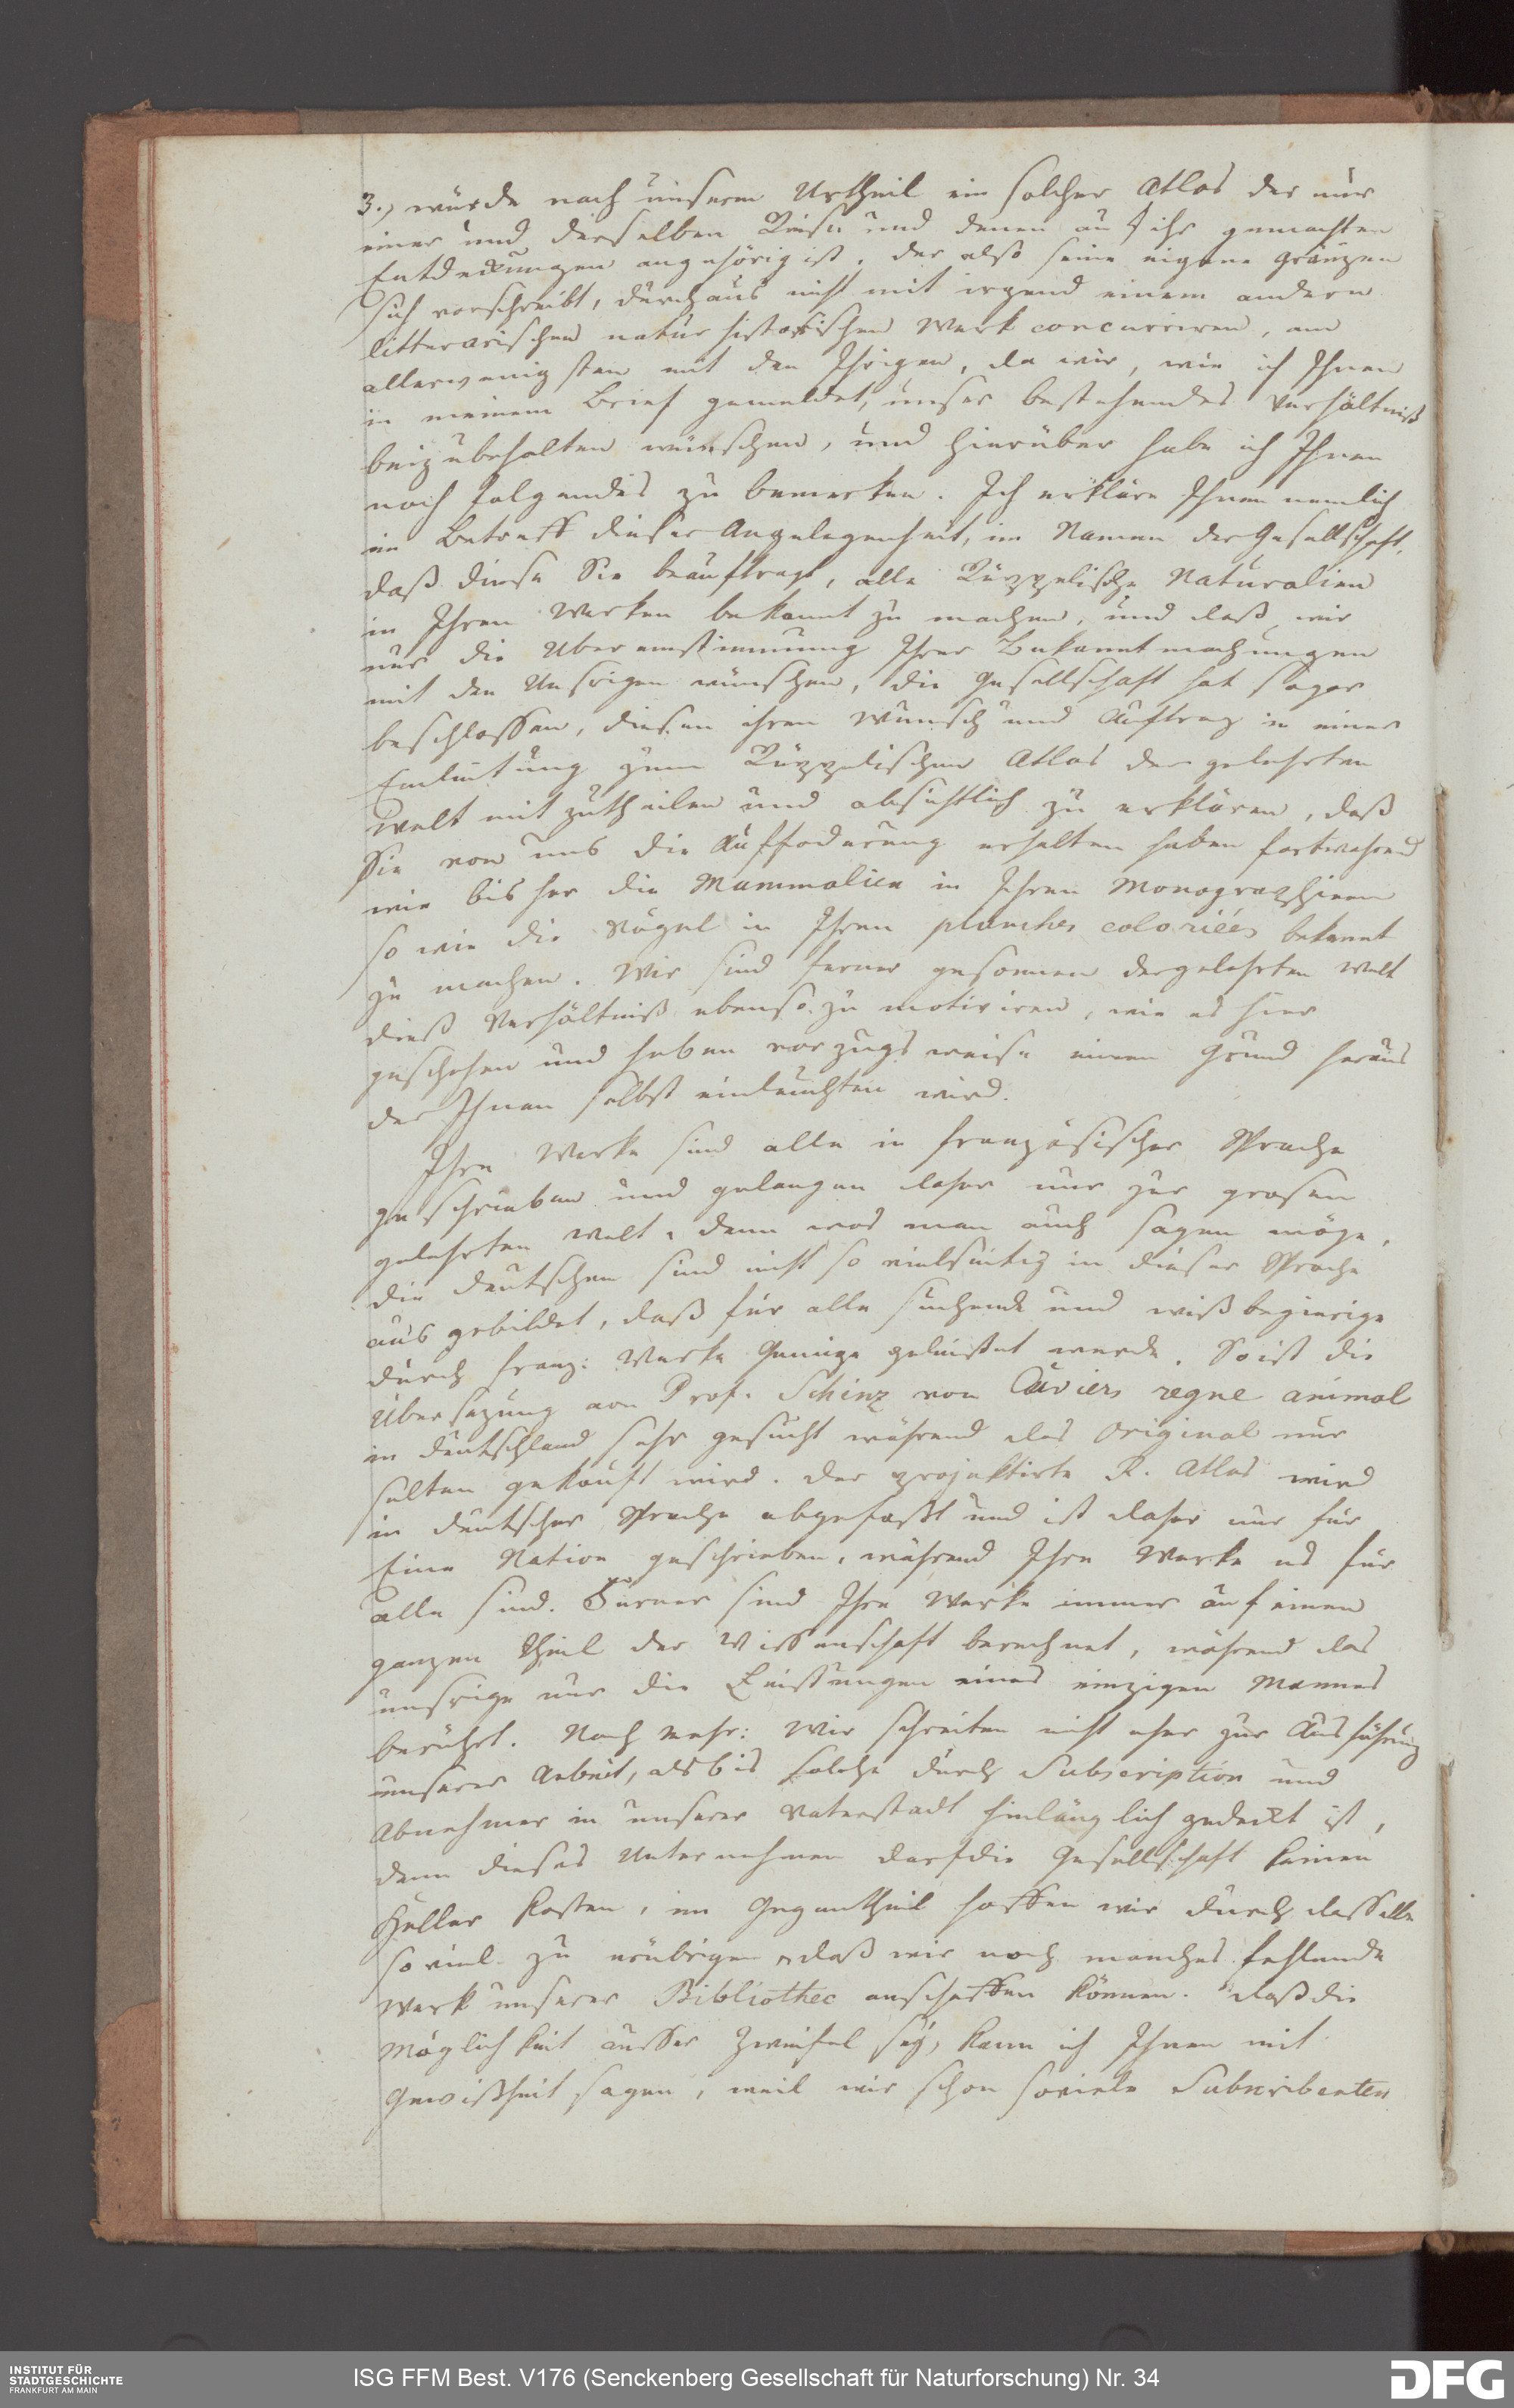 3., würde nach unserem Urtheil ein solcher Atlas der nur
einer und derselben Reise und denen auf ihr gemachten
Entdeckungen angehörig ist, der also seine eigene Gränzen
sich vorschreibt, durchaus nicht mit irgend einem andern
litterarischen naturhistorischen Werk concurriren, am
allerwenigsten mit den Ihrigen, da wir, wie ich Ihnen
in meinem Brief gemeldet, unser bestehendes Verhältniß
beizubehalten wünschen, und hierüber habe ich Ihnen
noch folgendes zu bemerken. Ich erkläre Ihnen nemlich
im Betreff dieser Angelegenheit, im Namen der Gesellschaft,
daß diese Sie beauftragt, alle Rüppelische Naturalien
in Ihren Werken bekannt zu machen, und daß wir
nur die Übereinstimmung Ihrer Bekanntmachungen
mit den Unsrigen wünschen, die Gesellschaft hat sogar
beschlossen, diesen ihren Wunsch und Auftrag in einer
Einleitung zum Rüppelischen Atlas der gelehrten
Welt mitzutheilen und absichtlich zu erklären, daß
Sie von uns die Auffoderung erhalten haben fortwährend
wie bisher die Mammalien in Ihren Monographieen
so wie die Vögel in Ihren planches coloriées bekannt
zu machen. Wir sind ferner gesonnen der gelehrten Welt
dieß Verhältniß ebenso zu motiviren, wie es hier
geschehen und heben vorzugsweise einen Grund heraus
der Ihnen selbst einleuchten wird.
Ihre Werke sind alle in französischer Sprache
geschrieben und gelangen daher nur zur grosen
gelehrten Welt, denn was man auch sagen möge,
die Deutschen sind nicht so vielseitig in dieser Sprache
ausgebildet, daß für alle suchende und wißbegierige
durch franz: Werke Genüge geleistet werde. So ist die
Übersezung von Prof. Schinz von Cuviers regne animal
in Deutschland sehr gesucht während das Original nur
selten gekauft wird. Der projektirte R. Atlas wird
in deutscher Sprache abgefaßt und ist daher nur für
Eine Nation geschrieben, während Ihre Werke es für
alle sind. Ferner sind Ihre Werke immer auf einen
ganzen Theil der Wissenschaft berechnet, während das
unsrige nur die Leistungen eines einzigen Mannes
berührt. Noch mehr: Wir schreiten nicht eher zur Ausführung
unserer Arbeit, als bis solche durch Subscription und
Abnehmer in unserer Vaterstadt hinlänglich gedeckt ist,
denn dieses Unternehmen darf die Gesellschaft keinen
Heller kosten, im Gegentheil hoffen wir durch dasselbe
soviel zu erübrigen, daß wir noch manches fehlende
Werk unserer Bibliothec anschaffen können. Daß die
Möglichkeit ausser Zweifel sey, kann ich Ihnen mit
Gewißheit sagen, weil wir schon soviele Subscribenten
INSTITUT FÜR
STADTGESCHICHTE
FRANKFURT AM MAIN
ISG FFM Best. V176 (Senckenberg Gesellschaft für Naturforschung) Nr. 34
DFG